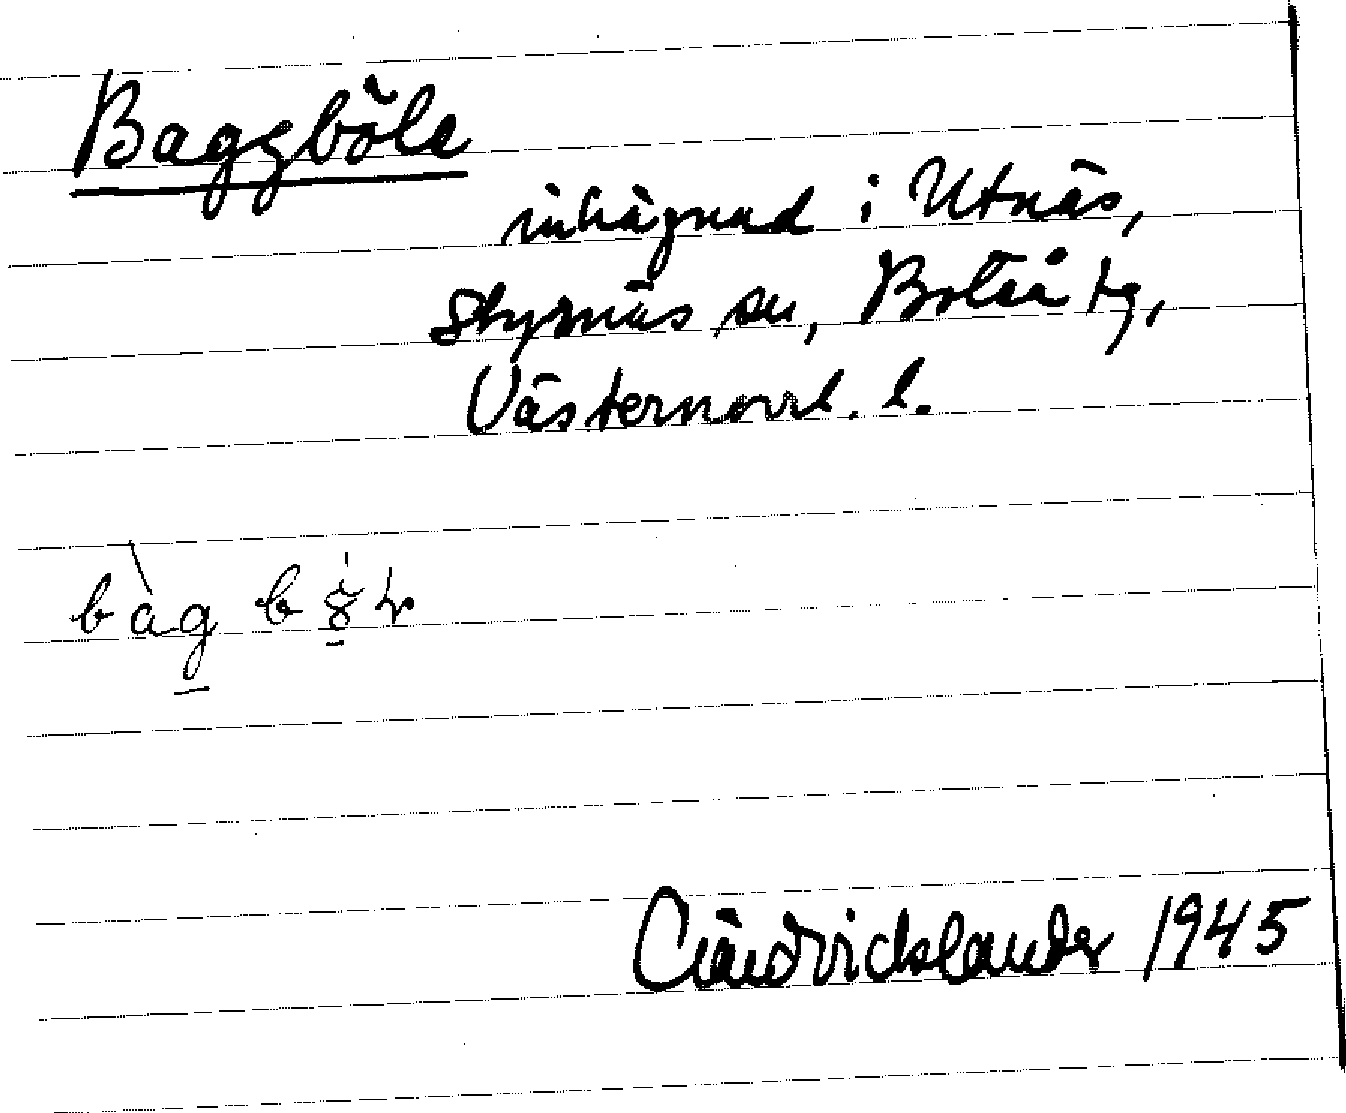 Baggböle
inhägnad i Utnäs,
Styrnäs sn, Boteå tg,
Västernorrl. l.
1945